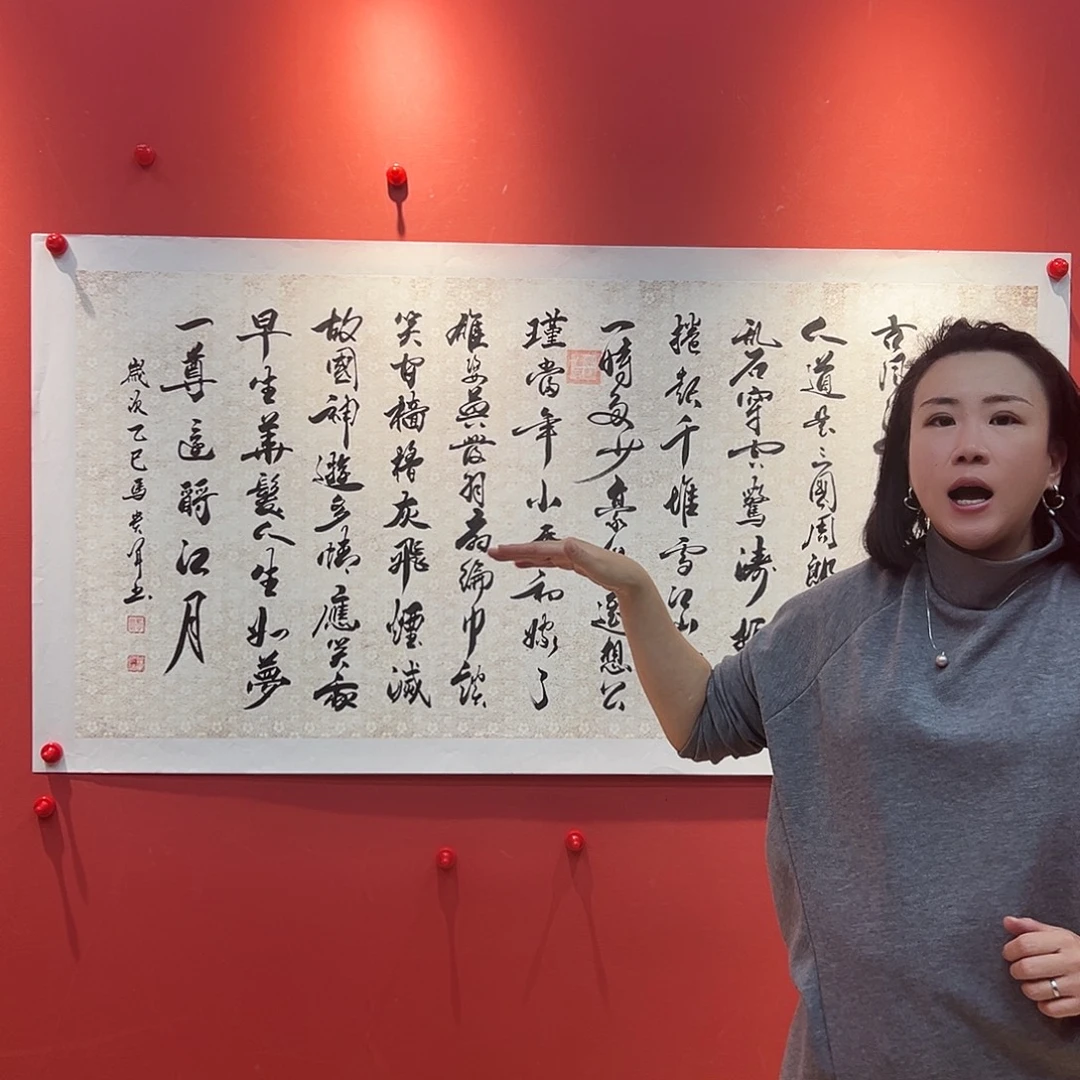 古風
人道是三國周郎
乱石穿空驚濤
捲起千堆雪江山
一時多少豪遙想公
瑾當年小喬初嫁了
雄姿英發羽扇綸巾談
笑間檣櫓灰飛煙滅
故國神遊多情應笑我
早生華髮人生如夢
一尊還酹江月
歲次乙巳馬貴軍书